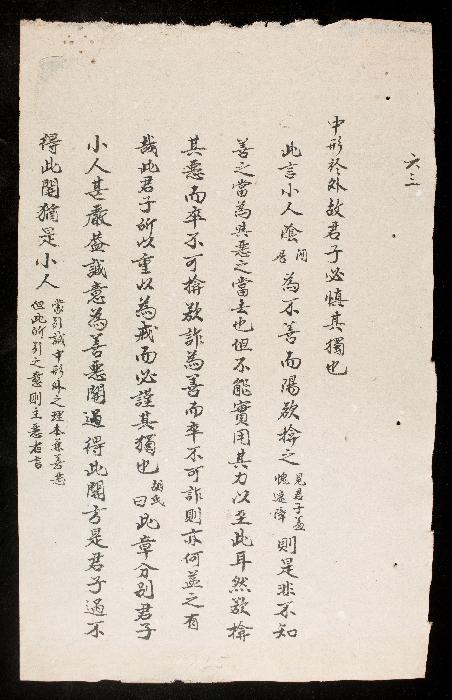 六三
中形於外故君子必慎其獨也
此言小人陰閒居為不善而陽欲揜之見君子蓋愧遮障則是非不知
善之當為與惡之當去也但不能實用其力以至此耳然欲揜
其惡而卒不可揜欲詐為善而卒不可詐則亦何益之有
哉此君子所以重以為戒而必謹其獨也胡氏曰此章分別君子
小人甚嚴蓋誠意為善惡關過得此關方是君子過不
得此關猶是小人引誠中形外之理本兼善惡但此所引之意則主惡者言